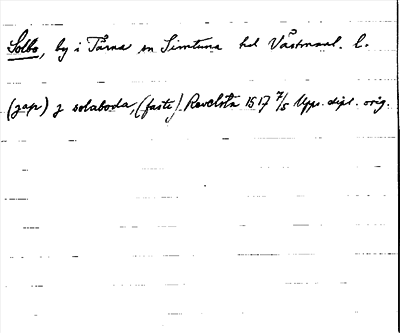 Solbo, by i Tärna sn Simtuna hd Västmanl. l.
(jap) j solaboda, (faste) Revelsta 1517 7/5 Upps. dipl. orig.